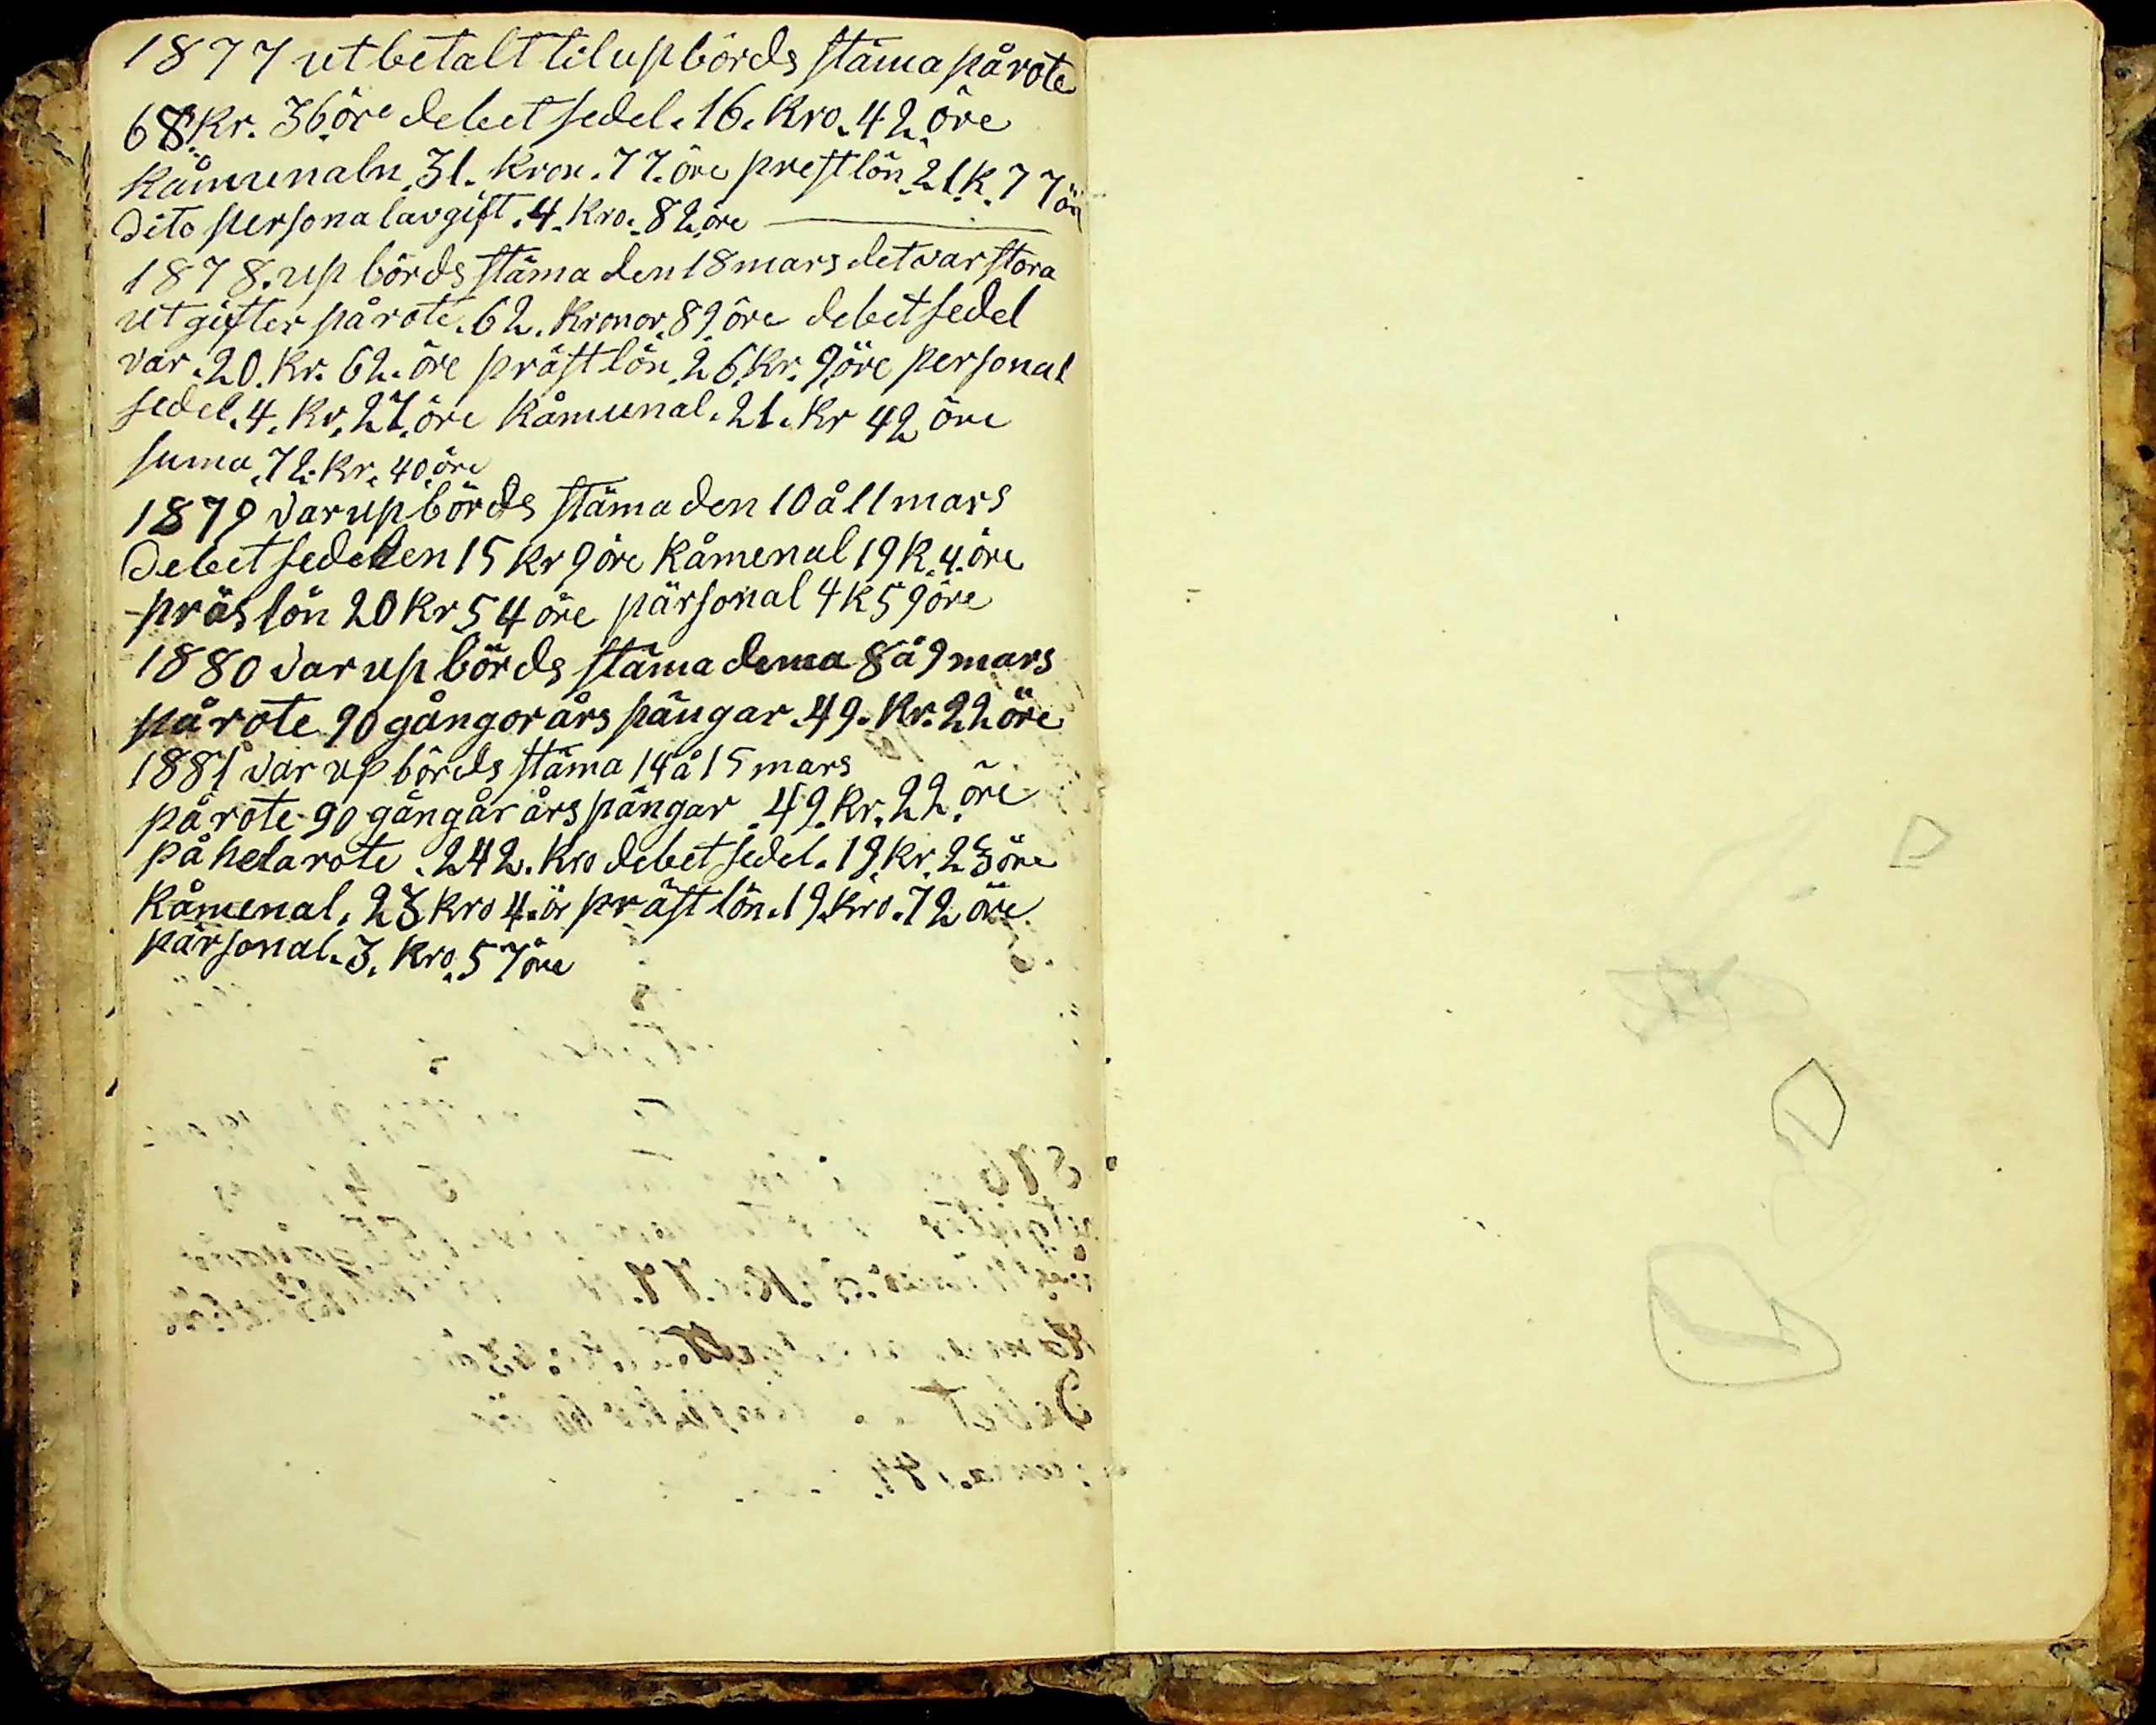 1877 utbetalt til upbörds stäma på rote
68 kr. 36 öre debet sedel. 16. kro. 42 öre
kåmunaln. 31. kron. 77. öre prest lön 21 k. 77 ör
dito personalavgift. 4. kro. 82 öre
1878. up börds stäma den 18 mars det var stora
ut gifter på rote. 62. kronor. 89 öre debet sedel
var. 20. kr. 62. öre präst lön. 26 kr. 9 öre personal
sedel. 4. kr. 27. öre kåmunal. 21. kr 42 öre
suma. 72. kr. 40. öre
1879 var up börds stäma den 10 å 11 mars
debet sedelen 15 kr 9 öre kåmenal 19 k. 4. öre
präs lön 20 kr 54 öre pärsonal 4 k 59 öre
1880 var up börds stäma dema 8 å 9 mars
på rote 90 gångor års pängar. 49. kr. 22 öre
1881 var up börds stäma 14 å 15 mars
på rote 90 gångår års pängar. 49. kr. 22. öre
på hela rote. 242. kro debet sedel. 19. kr. 23 öre
kåmenal. 23 kro 4. ör präst lön. 19. kro. 72 öre
pärsonal. 3. kro. 57 öre